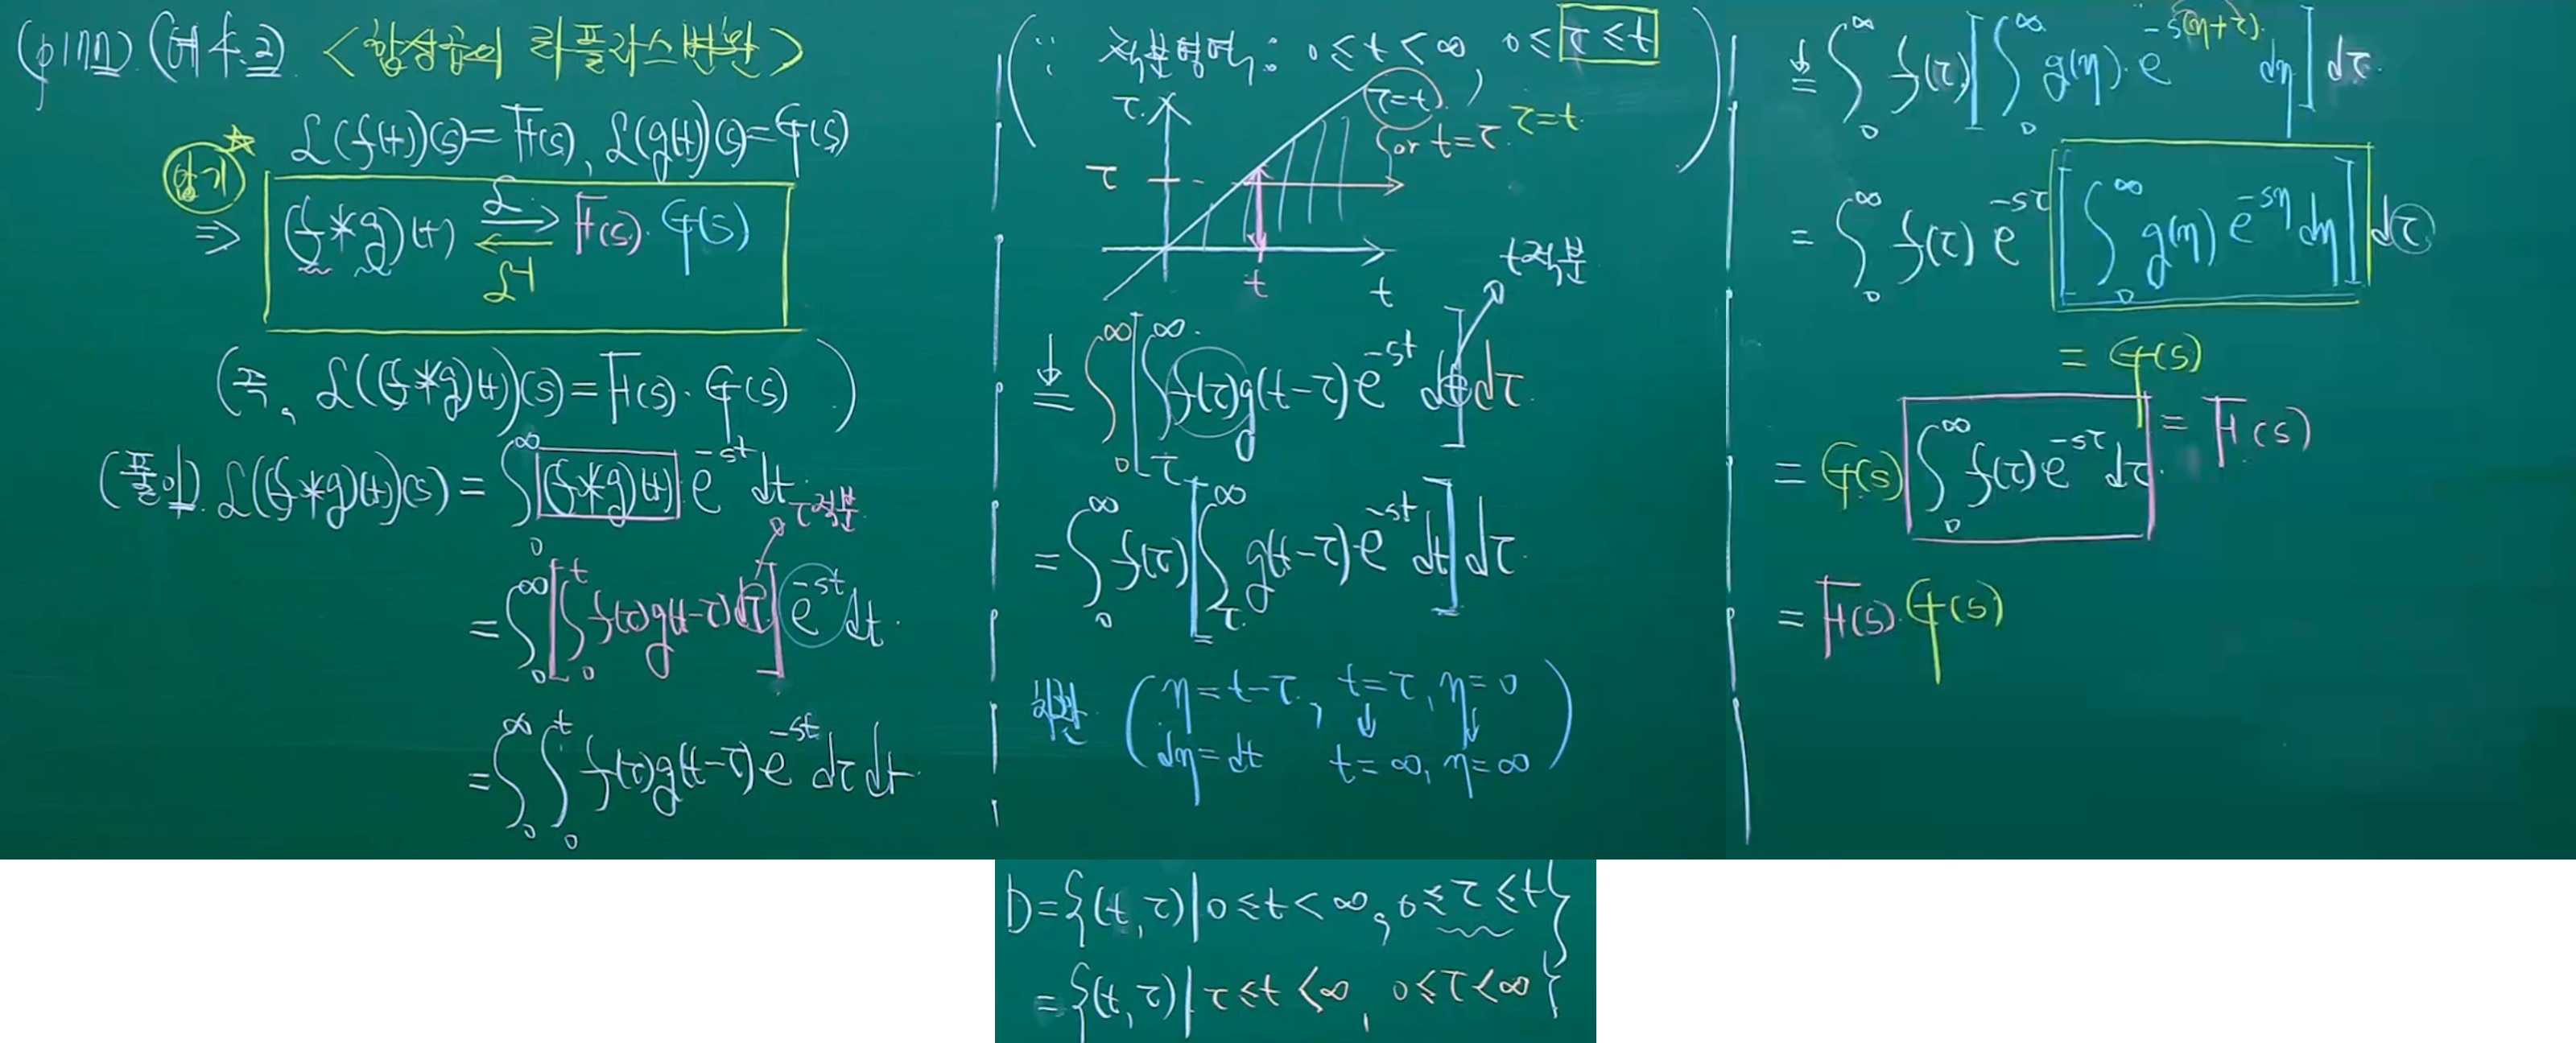 (p177) (예제.2) <합성곱의 라플라스변환>
ℒ(f(t))(s)=F(s), ℒ(g(t))(s)=G(s)
암기 ☆
⇒ (f*g)(t) ℒ→ ←ℒ⁻¹ F(s)·G(s)
(즉, ℒ((f*g)(t))(s)=F(s)·G(s))
(풀이) ℒ((f*g)(t))(s) = ∫₀^∞ (f*g)(t) e^{-st} dt
τ적분
= ∫₀^∞ [∫₀^t f(τ)g(t-τ)dτ] e^{-st} dt.
= ∫₀^∞ ∫₀^t f(τ)g(t-τ)e^{-st} dτ dt.
(∵ 적분영역: 0≤t<∞, 0≤τ≤t)
τ τ=t, τ=t.
or t=τ
τ
t t
t적분
= ∫₀^∞ [∫_τ^∞ f(τ)g(t-τ)e^{-st} dt] dτ.
= ∫₀^∞ f(τ) [∫_τ^∞ g(t-τ)·e^{-st} dt] dτ.
치환 (η=t-τ, t=τ, η=0
dη=dt t=∞, η=∞)
D={(t,τ)|0≤t<∞, 0≤τ≤t}
={(t,τ)|τ≤t<∞, 0≤τ<∞}
= ∫₀^∞ f(τ) [∫₀^∞ g(η)·e^{-s(η+τ)} dη] dτ.
= ∫₀^∞ f(τ) e^{-sτ} [∫₀^∞ g(η) e^{-sη} dη] dτ
= G(s)
= G(s) ∫₀^∞ f(τ)e^{-sτ} dτ. = F(s)
= F(s)·G(s)